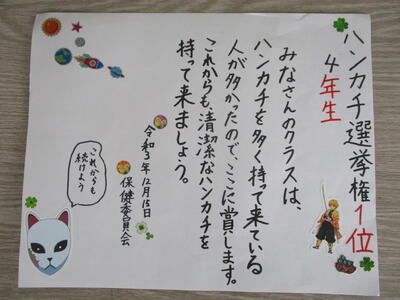 ハンカチ選挙権1位
4年生
みなさんのクラスは、
ハンカチを多く持って来ている
人が多かったので、ここに賞します。
これからも、清潔なハンカチを
持って来ましょう。
令和3年12月15日
保健委員会
これからも
続けよう